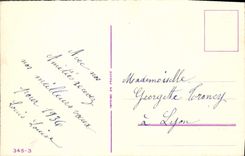 Avec nos
Amitiés recevez
nos meilleurs vœux
pour 1936
Louis Louise
Mademoiselle
Georgette
à Lyon
345-3